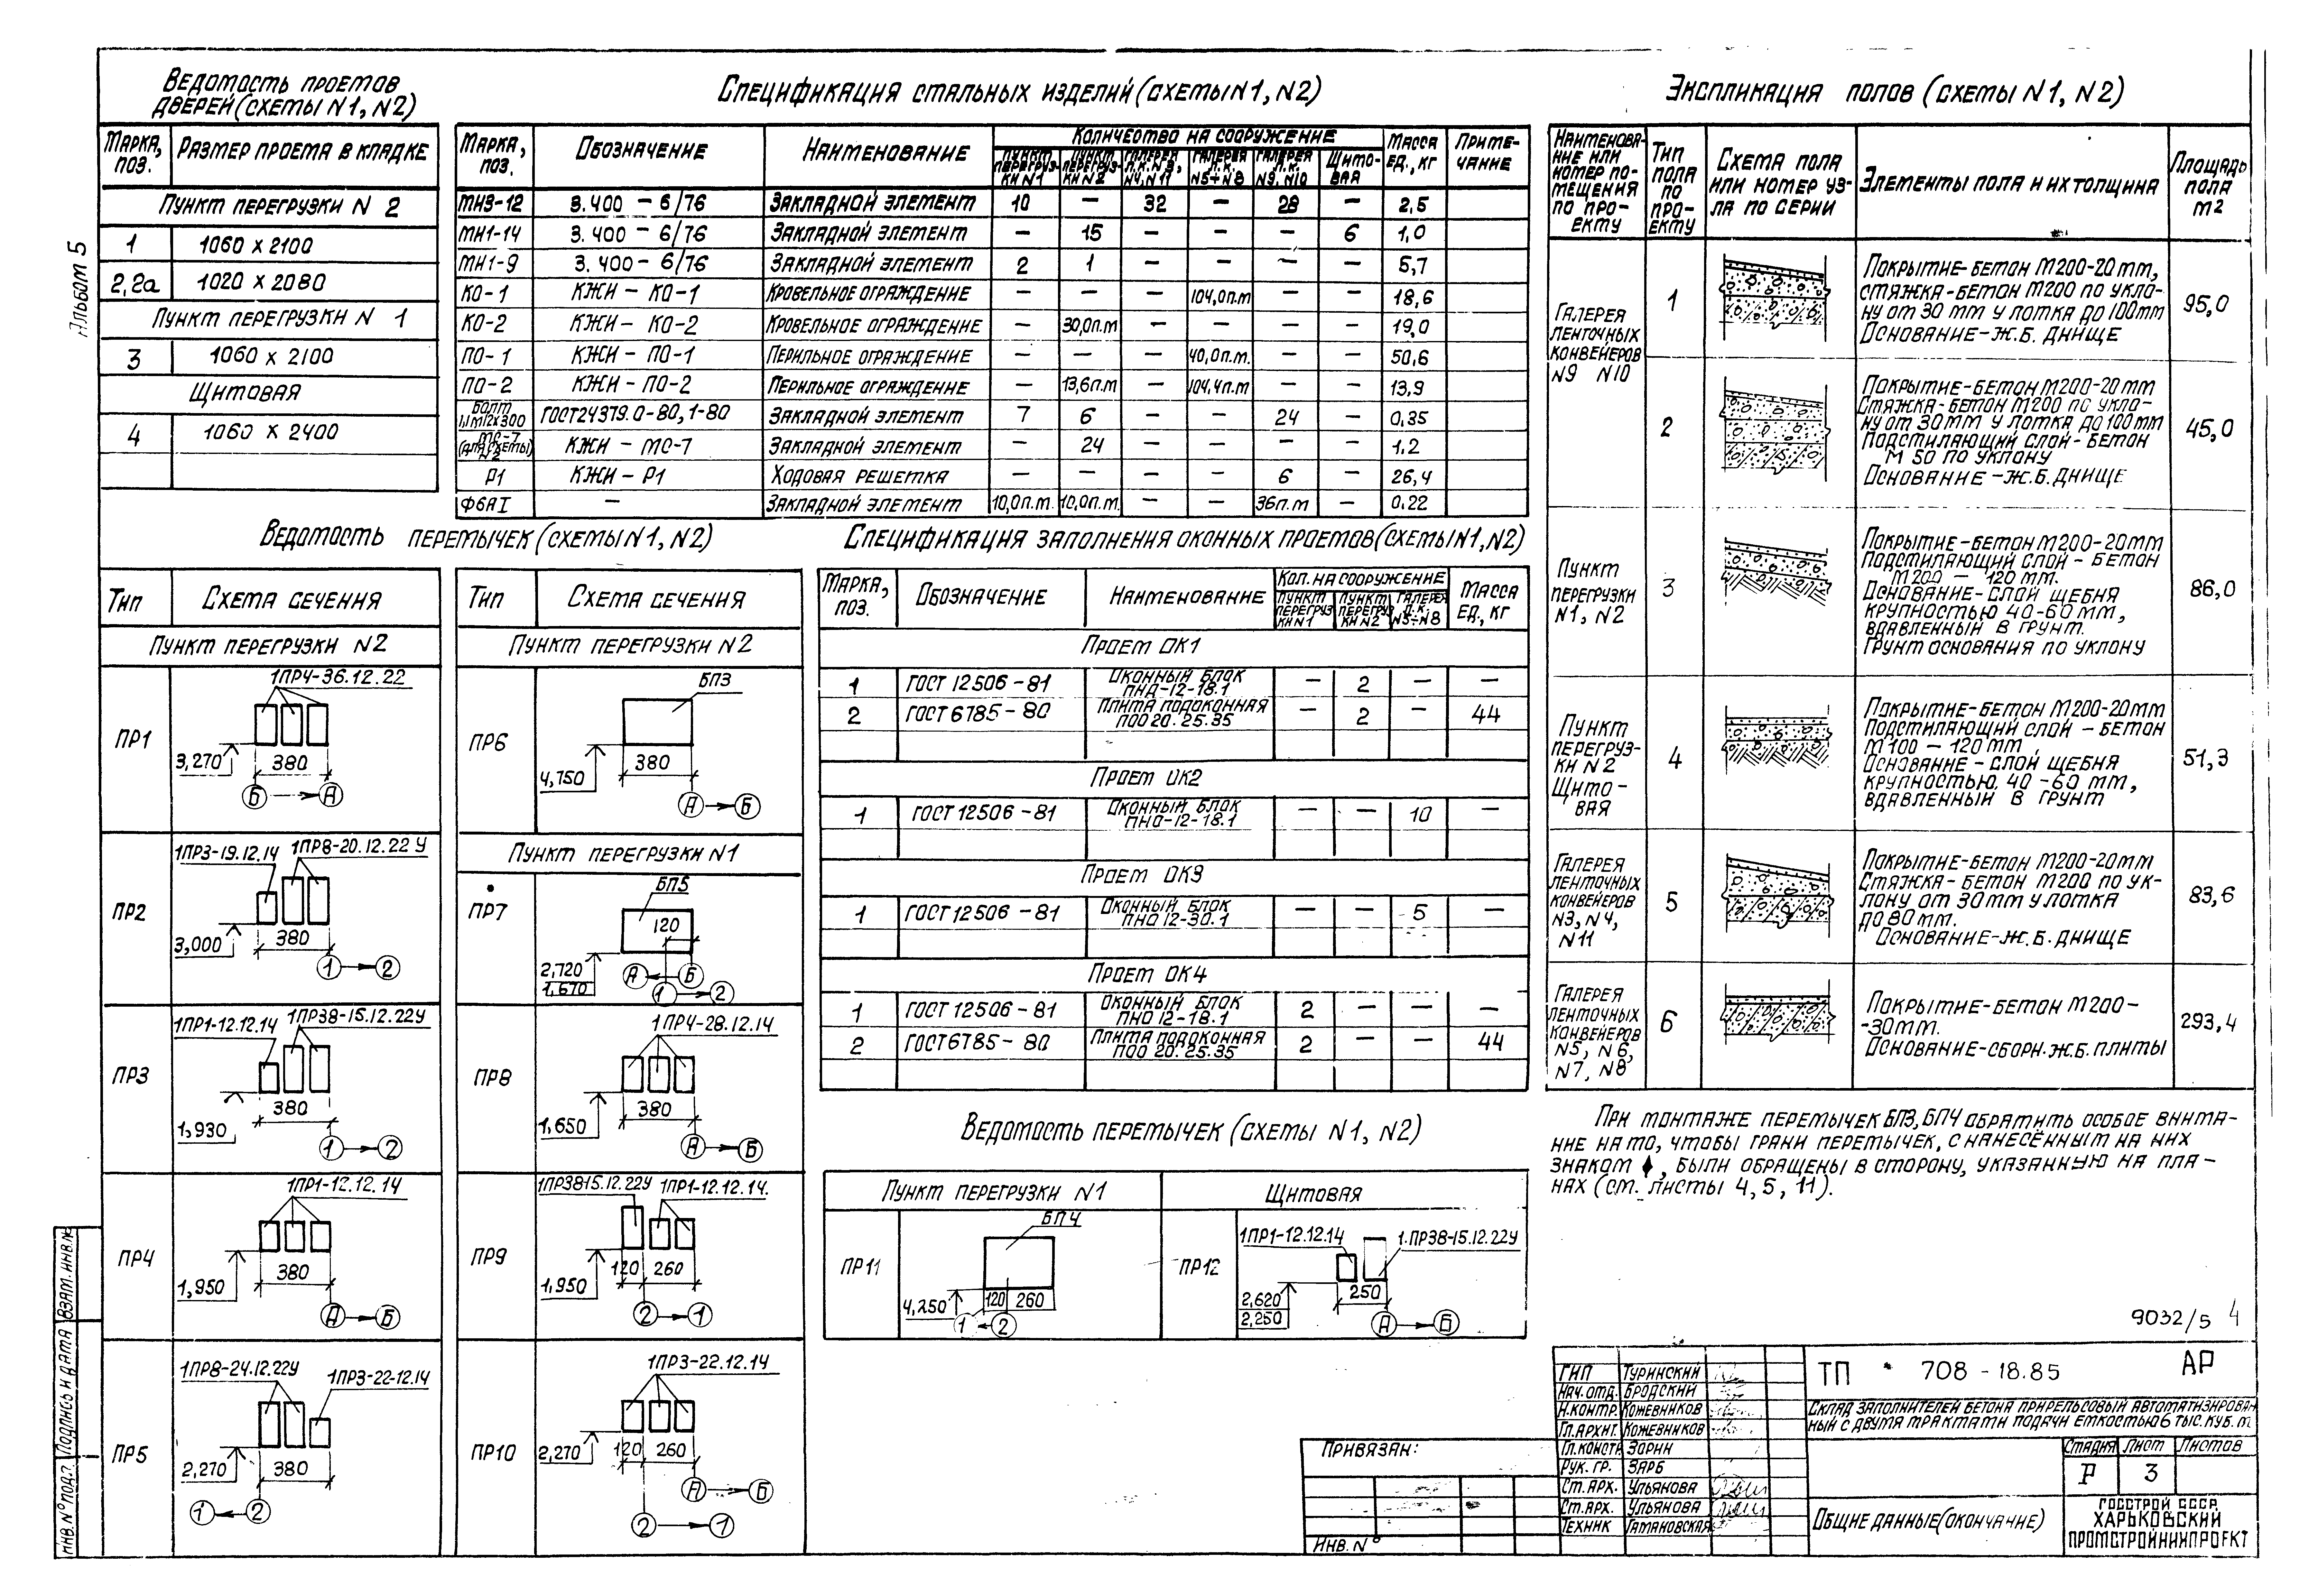 Альбом 5
Ведомость проемов
дверей (схемы N1, N2)
Марка, поз. | Размер проема в кладке
Пункт перегрузки N 2
1 | 1060 x 2100
2,2а | 1020 x 2080
Пункт перегрузки N 1
3 | 1060 x 2100
Щитовая
4 | 1060 x 2400
Спецификация стальных изделий (схемы N1, N2)
Марка, поз. | Обозначение | Наименование | Количество на сооружение | Масса ед., кг | Примечание
Пункт перегрузки N1 | Пункт перегрузки N2 | Галерея Л.К. N3, N4, N11 | Галерея Л.К. N5÷N8 | Галерея Л.К. N9, N10 | Щитовая
МН3-12 | 3.400 - 6/76 | Закладной элемент | 10 | — | 32 | — | 28 | — | 2,5
МН1-14 | 3.400 - 6/76 | Закладной элемент | — | 15 | — | — | — | 6 | 1,0
МН1-9 | 3.400 - 6/76 | Закладной элемент | 2 | 1 | — | — | — | — | 5,7
КО-1 | КЖИ - КО-1 | Кровельное ограждение | — | — | — | 104,0п.м | — | — | 18,6
КО-2 | КЖИ - КО-2 | Кровельное ограждение | — | 30,0п.м | — | — | — | — | 19,0
ПО-1 | КЖИ - ПО-1 | Перильное ограждение | — | — | — | 40,0п.м. | — | — | 50,6
ПО-2 | КЖИ - ПО-2 | Перильное ограждение | — | 13,6п.м | — | 104,4п.м | — | — | 13,9
Болт 1,1М12х300 | ГОСТ24379.0-80,1-80 | Закладной элемент | 7 | 6 | — | — | 24 | — | 0,35
МС-7 (для схемы N2) | КЖИ - МС-7 | Закладной элемент | — | 24 | — | — | — | 1.2
Р1 | КЖИ - Р1 | Ходовая решетка | — | — | — | — | 6 | — | 26,4
Ф6АI | — | Закладной элемент | 10,0п.м. | 10,0п.м. | — | — | 36п.м | — | 0.22
Ведомость перемычек (схемы N1, N2)
Тип | Схема сечения | Тип | Схема сечения
Пункт перегрузки N2
ПР1
1ПР4-36.12.22
3,270
380
Б А
ПР2
1ПР3-19.12.14 1ПР8-20.12.22У
3,000
380
1 2
ПР3
1ПР1-12.12.14 1ПР38-15.12.22У
1,930
380
1 2
ПР4
1ПР1-12.12.14
1,950
380
А Б
ПР5
1ПР8-24.12.22У 1ПР3-22-12.14
2,270
380
1 2
Пункт перегрузки N2
ПР6
БП3
4,750
380
А Б
Пункт перегрузки N1
ПР7
БП5
120
2,720
1,670
А Б
1 2
ПР8
1ПР4-28.12.14
1,650
380
А Б
ПР9
1ПР38-15.12.22У 1ПР1-12.12.14.
1,950
120 260
2 1
ПР10
1ПР3-22.12.14
2,270
120 260
А Б
2 1
Спецификация заполнения оконных проемов (схемы N1, N2)
Марка, поз. | Обозначение | Наименование | Кол. на сооружение | Масса ед., кг
Пункт перегрузки N1 | Пункт перегрузки N2 | Галерея Л.К. N5÷N8
Проем ОК1
1 | ГОСТ 12506-81 | Оконный блок ПНД-12-18.1 | — | 2 | — | —
2 | ГОСТ 6785-80 | Плита подоконная ПОО 20.25.35 | — | 2 | — | 44
Проем ОК2
1 | ГОСТ 12506-81 | Оконный блок ПНО-12-18.1 | — | — | 10 | —
Проем ОК3
1 | ГОСТ 12506-81 | Оконный блок ПНО 12-30.1 | — | — | 5 | —
Проем ОК4
1 | ГОСТ 12506-81 | Оконный блок ПНО 12-18.1 | 2 | — | — | —
2 | ГОСТ 6785-80 | Плита подоконная ПОО 20.25.35 | 2 | — | — | 44
Ведомость перемычек (схемы N1, N2)
Пункт перегрузки N1 | Щитовая
ПР11
БП4
4,250
120 260
1 2
ПР12
1ПР1-12.12.14 1.ПР38-15.12.22У
2,620
2,250
250
А Б
Экспликация полов (схемы N1, N2)
Наименование или номер помещения по проекту | Тип пола по проекту | Схема пола или номер узла по серии | Элементы пола и их толщина | Площадь пола м2
Галерея
ленточных
конвейеров
N9 N10
1
Покрытие-бетон М200-20мм,
стяжка-бетон М200 по укло-
ну от 30мм у лотка до 100мм
Основание-ж.б. днище
95,0
2
Покрытие-бетон М200-20мм
Стяжка-бетон М200 по укло-
ну от 30мм у лотка до 100мм
Подстилающий слой-бетон
М 50 по уклону
Основание-ж.б. днище
45,0
Пункт
перегрузки
N1, N2
3
Покрытие-бетон М200-20мм
Подстилающий слой-бетон
М200 — 120мм.
Основание-слой щебня
крупностью 40-60мм,
вдавленный в грунт.
Грунт основания по уклону
86,0
Пункт
перегруз-
ки N2
Щито-
вая
4
Покрытие-бетон М200-20мм
Подстилающий слой-бетон
М100 — 120мм
Основание-слой щебня
крупностью 40-60мм,
вдавленный в грунт
51,3
Галерея
ленточных
конвейеров
N3, N4,
N11
5
Покрытие-бетон М200-20мм
Стяжка-бетон М200 по ук-
лону от 30мм у лотка
до 80мм.
Основание-ж.б. днище
83,6
Галерея
ленточных
конвейеров
N5, N6,
N7, N8
6
Покрытие-бетон М200-
-30мм.
Основание-сборн.ж.б. плиты
293,4
При монтаже перемычек БП3, БП4 обратить особое внима-
ние на то, чтобы грани перемычек, с нанесённым на них
знаком ♦, были обращены в сторону, указанную на пла-
нах (см. листы 4, 5, 11).
9032/5 4
ГИП Туринский
Нач.отд. Бродский
Н.контр. Кожевников
Гл.архит. Кожевников
Гл.констр. Зорин
Рук. гр. Зарб
Ст.арх. Ульянова
Ст.арх. Ульянова
Техник Гамановская
ТП 708-18.85 АР
Склад заполнителей бетона прирельсовый автоматизирован
ный с двумя трактами подачи емкостью 6 тыс.куб.м
Стадия Лист Листов
Р 3
Общие данные (окончание)
Госстрой СССР
Харьковский
Промстройниипроект
Привязан:
Инв. №
Инв.№подл. Подпись и дата Взам.инв.№